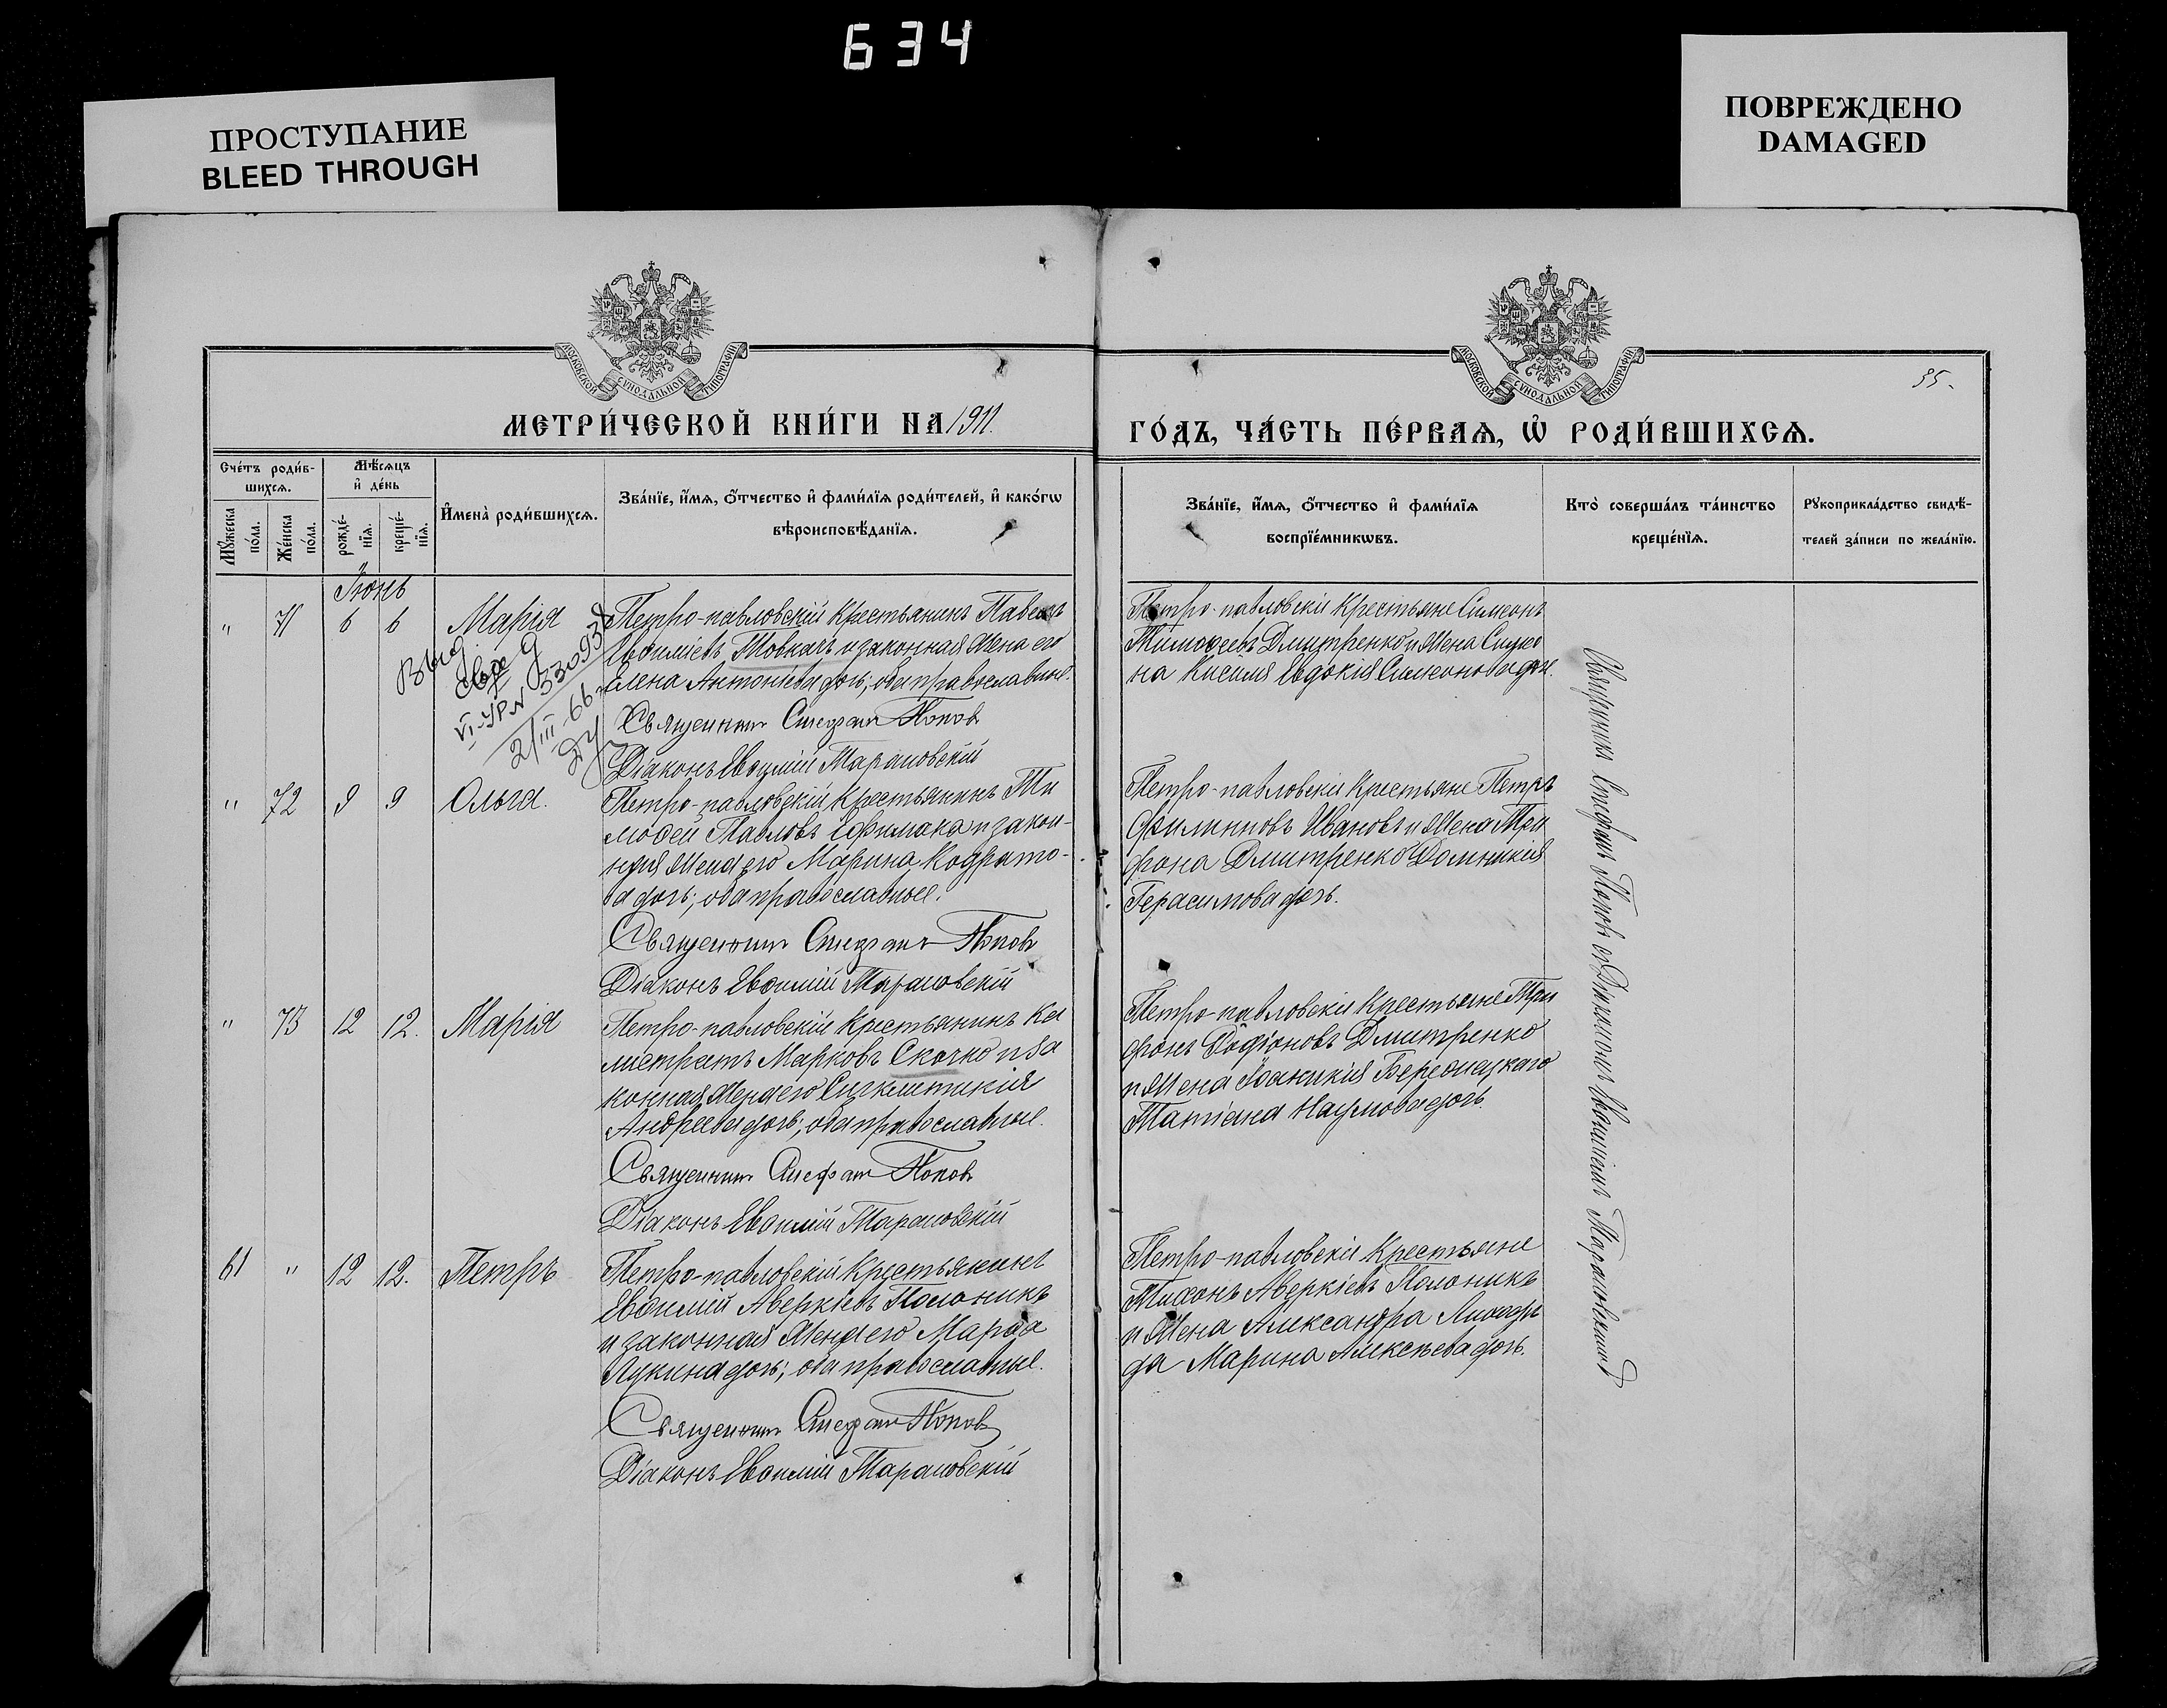 634
ПРОСТУПАНИЕ
BLEED THROUGH
ПОВРЕЖДЕНО
DAMAGED
МОСКОВСКОЙ СѴНОДАЛЬНОЙ ТИПОГРАФІИ
МОСКОВСКОЙ СѴНОДАЛЬНОЙ ТИПОГРАФІИ
35.
МЕТРИ́ЧЕСКОЙ КНИ́ГИ НА 1911.
ГО́ДЪ, ЧА́СТЬ ПЕ́РВАѦ, Ѡ҆ РОДИ́ВШИХСѦ.
Сче́тъ роди́в-
шихсѧ.
Мꙋ́жеска по́ла.
Же́нска по́ла.
Мѣ́сѧцъ
и҆ де́нь
рожде́-
нїѧ.
креще́-
нїѧ.
И҆мена̀ роди́вшихсѧ.
Зва́нїе, и҆́мѧ, ѻ҆́тчество и҆ фами́лїѧ роди́телей, и҆ како́гѡ
вѣроисповѣ́данїѧ.
Зва́нїе, и҆́мѧ, ѻ҆́тчество и҆ фами́лїѧ
воспрїе́мникѡвъ.
Кто̀ соверша́лъ та́инство
креще́нїѧ.
Рꙋкоприкла́дство свидѣ́-
телей за́писи по жела́нїю.
Іюнь
" 71 6 6 Марія
Петро-павловскій Крестьянинъ Павелъ
Евѳиміевъ Товкачъ и законная жена его
Елена Антоніева дочь; оба православные.
Священникъ Стефанъ Поповъ
Діаконъ Евѳимій Тарановскій
Петро-павловскіе Крестьяне Симеонъ
Тимоѳеевъ Дмитренко и жена
на Киселя Евдокія Симеонова дочь.
Выд.
VI-УР №
2/III 66
" 72 9 9 Ольга.
Петро-павловскій Крестьянинъ Ти
моѳей Павловъ и закон-
ная жена его Марина Кодрато-
ва дочь; оба православные.
Священникъ Стефанъ Поповъ
Діаконъ Евѳимій Тарановскій
Петро-павловскіе Крестьяне Петръ
Филипповъ Ивановъ и жена Три
фона Дмитренко Домникія
Герасимова дочь.
" 73 12 12. Марія
Петро-павловскій Крестьянинъ Ка
листратъ Марковъ Скочко и за
конная жена его Синклитикія
Андреева дочь; оба православные.
Священникъ Стефанъ Поповъ
Діаконъ Евѳимій Тарановскій
Петро-павловскіе Крестьяне Три
фонъ Родіоновъ Дмитренко
и жена Іоанникія
Татіана Наумова дочь.
61 " 12 12. Петръ
Петро-павловскій Крестьянинъ
Евѳимій Аверкіевъ Полоникъ
и законная жена его Марѳа
Лукина дочь; оба православные.
Священникъ Стефанъ Поповъ
Діаконъ Евѳимій Тарановскій
Петро-павловскіе Крестьяне
Тихонъ Аверкіевъ Полоникъ
и жена Александра
да Марина Алексѣева дочь.
Священникъ Стефанъ Поповъ съ Діакономъ Евѳиміемъ Тарановскимъ